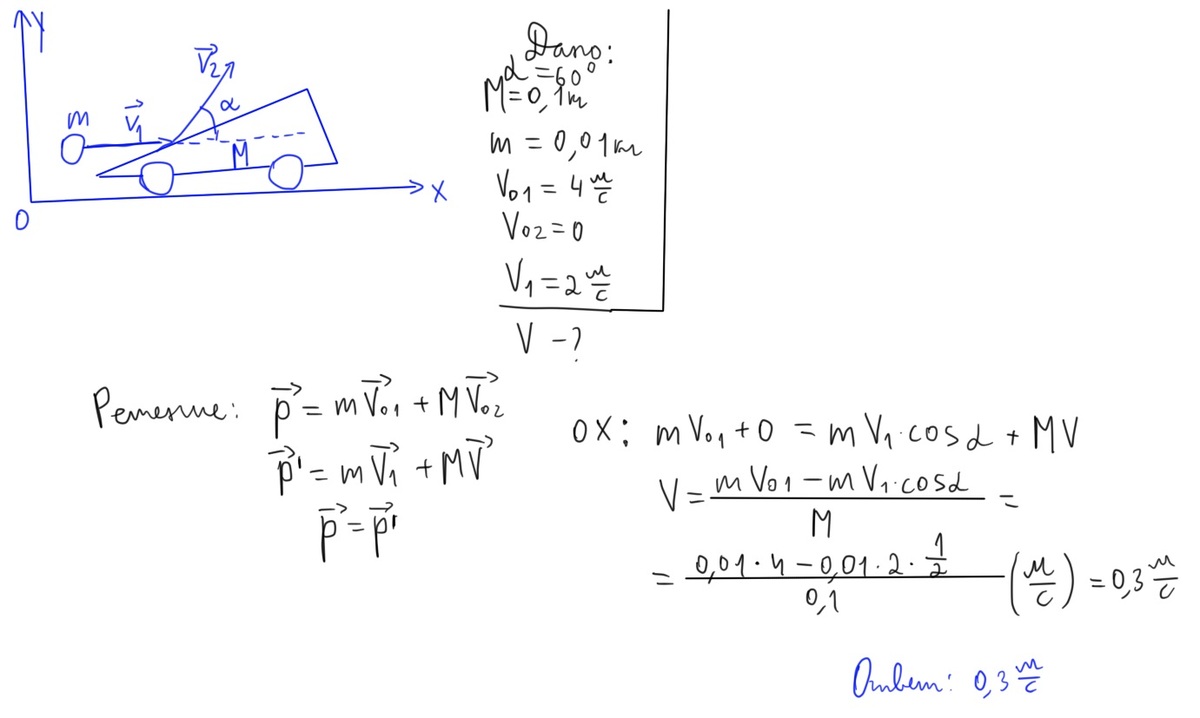 Y
V⃗₂
α
m
V⃗₁
M
X
0
Дано:
α = 60°
M = 0,1кг
m = 0,01кг
V₀₁ = 4 м/с
V₀₂ = 0
V₁ = 2 м/с
V - ?
Решение:
p⃗ = mV⃗₀₁ + MV⃗₀₂
p⃗' = mV⃗₁ + MV⃗
p⃗ = p⃗'
OX: mV₀₁ + 0 = mV₁·cosα + MV
V = (mV₀₁ - mV₁·cosα)/M =
= (0,01·4 - 0,01·2·1/2)/0,1 (м/с) = 0,3 м/с
Ответ: 0,3 м/с